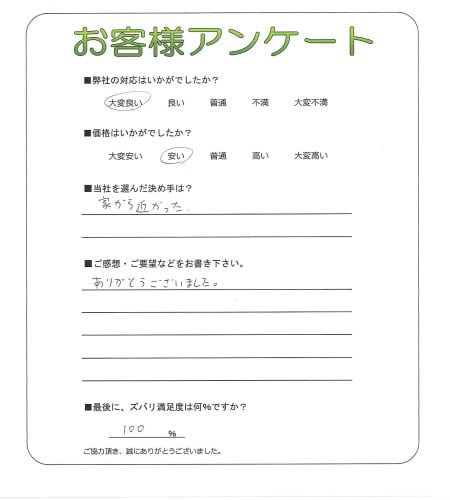 お客様アンケート
■弊社の対応はいかがでしたか？
大変良い 良い 普通 不満 大変不満
■価格はいかがでしたか？
大変安い 安い 普通 高い 大変高い
■当社を選んだ決め手は？
家から近かった.
■ご感想・ご要望などをお書き下さい。
ありがとうございました。
■最後に、ズバリ満足度は何%ですか？
100 %
ご協力頂き、誠にありがとうございました。